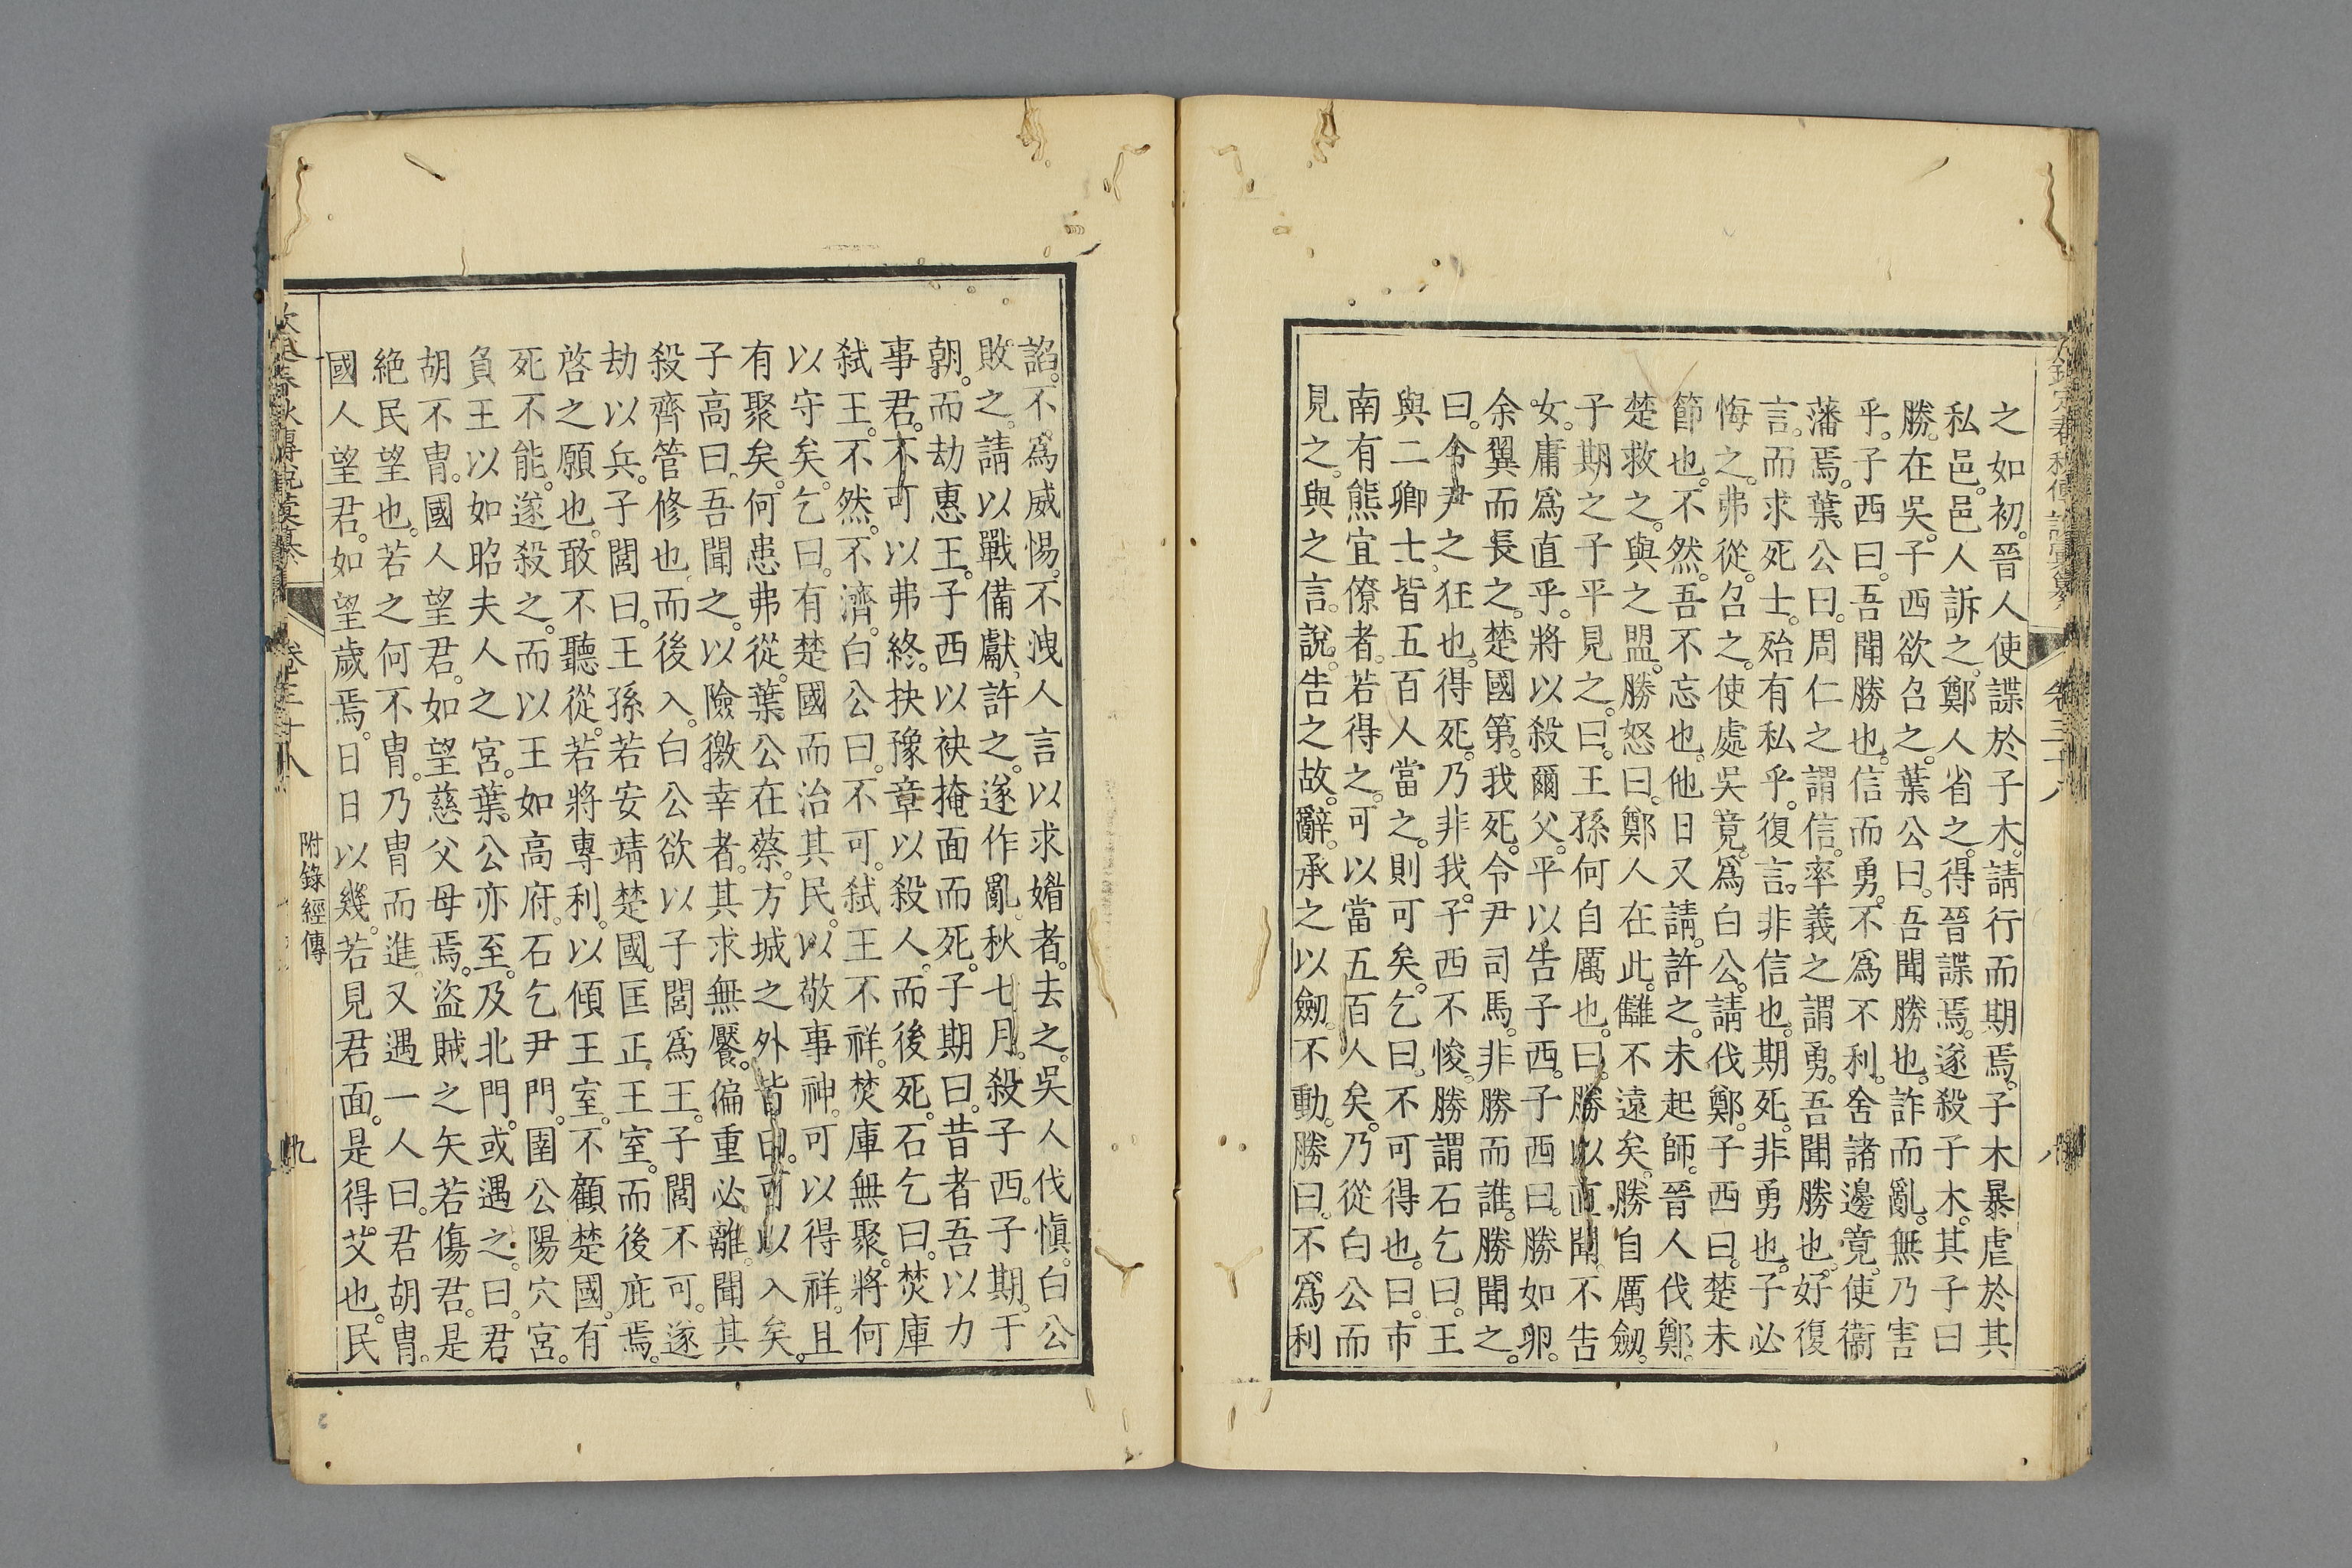 欽定春秋傳說彙纂 卷三十八 八
之如初。晉人使諜於子木。請行而期焉。子木暴虐於其
私邑。邑人訴之。鄭人省之。得晉諜焉。遂殺子木。其子曰
勝。在吳。子西欲召之。葉公曰。吾聞勝也。詐而亂。無乃害
乎。子西曰。吾聞勝也。信而勇。不爲不利。舍諸邊竟。使衞
藩焉。葉公曰。周仁之謂信。率義之謂勇。吾聞勝也。好復
言。而求死士。殆有私乎。復言。非信也。期死。非勇也。子必
悔之。弗從。召之。使處吳竟。爲白公。請伐鄭。子西曰。楚未
節也。不然。吾不忘也。他日又請。許之。未起師。晉人伐鄭。
楚救之。與之盟。勝怒曰。鄭人在此。讎不遠矣。勝自厲劒。
子期之子平見之。曰。王孫何自厲也。曰。勝以直聞。不告
女。庸爲直乎。將以殺爾父。平以告子西。子西曰。勝如卵。
余翼而長之。楚國第。我死。令尹司馬。非勝而誰。勝聞之。
曰。令尹之狂也。得死。乃非我。子西不悛。勝謂石乞曰。王
與二卿士。皆五百人當之。則可矣。乞曰。不可得也。曰。市
南有熊宜僚者。若得之。可以當五百人矣。乃從白公而
見之。與之言。說。告之故。辭。承之以劒。不動。勝曰。不爲利
諂。不爲威惕。不洩人言以求媚者。去之。吳人伐愼。白公
敗之。請以戰備獻。許之。遂作亂。秋七月。殺子西。子期。于
朝。而劫惠王。子西以袂掩面而死。子期曰。昔者吾以力
事君。不可以弗終。抉豫章以殺人。而後死。石乞曰。焚庫
弑王。不然。不濟。白公曰。不可。弑王不祥。焚庫無聚。將何
以守矣。乞曰。有楚國而治其民。以敬事神。可以得祥。且
有聚矣。何患弗從。葉公在蔡。方城之外。皆曰。可以入矣。
子高曰。吾聞之。以險徼幸者。其求無饜。偏重必離。聞其
殺齊管修也。而後入。白公欲以子閭爲王。子閭不可。遂
劫以兵。子閭曰。王孫若安靖楚國。匡正王室。而後庇焉。
啓之願也。敢不聽從。若將專利。以傾王室。不顧楚國。有
死不能。遂殺之。而以王如高府。石乞尹門。圉公陽穴宮。
負王以如昭夫人之宮。葉公亦至。及北門。或遇之。曰。君
胡不冑。國人望君。如望慈父母焉。盜賊之矢若傷君。是
絶民望也。若之何不冑。乃冑而進。又遇一人曰。君胡冑。
國人望君。如望歲焉。日日以幾。若見君面。是得艾也。民
欽定春秋傳說彙纂 卷三十八 附錄經傳 九